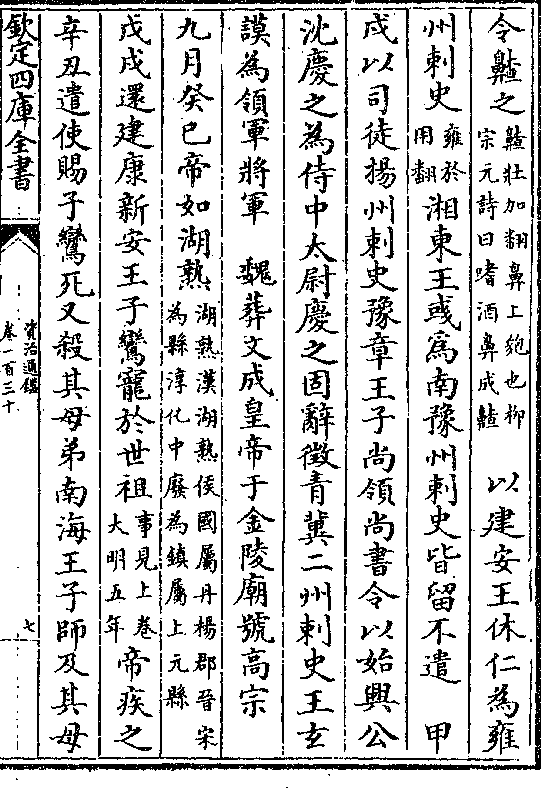 令齇之齇壯加翻鼻上皰也柳
宗元詩曰嗜酒鼻成齇以建安王休仁為雍
州刺史雍於
用翻湘東王彧為南豫州刺史皆留不遣 甲
戌以司徒揚州刺史豫章王子尚領尚書令以始興公
沈慶之為侍中太尉慶之固辭徵青冀二州刺史王玄
謨為領軍將軍 魏葬文成皇帝于金陵廟號高宗
九月癸巳帝如湖熟湖熟漢湖熟侯國屬丹楊郡晉宋
為縣淳化中廢為鎮屬上元縣
戊戌還建康新安王子鸞寵於世祖事見上卷
大明五年帝疾之
辛丑遣使賜子鸞死又殺其母弟南海王子師及其母
欽定四庫全書
資治通鑑
卷一百三十
七